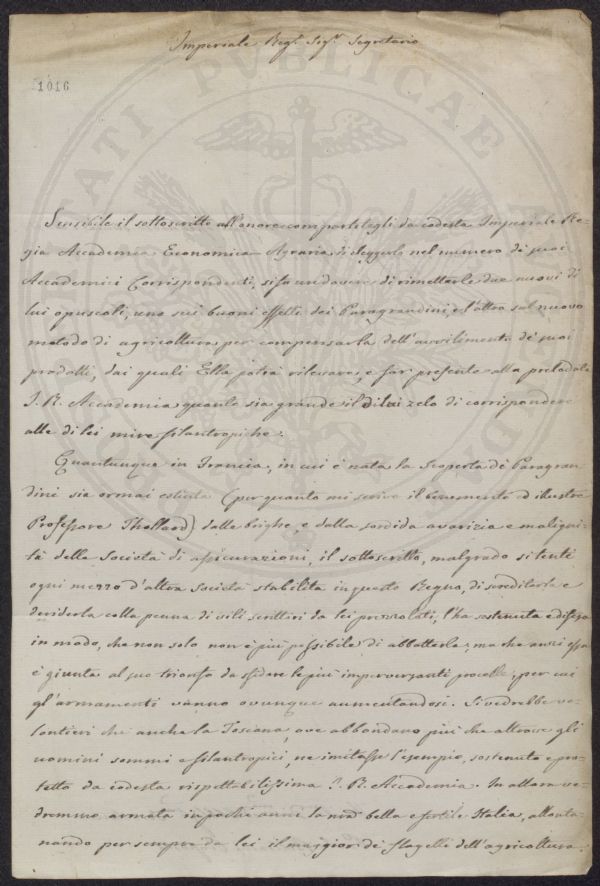 Imperiale Regº Sigr Segretario
1016
Sensibile il sottoscritto all'onore compartitogli da codesta Imperiale Re-
gia Accademia Economica Agraria di eleggerlo nel numero de' suoi
Accademici Corrispondenti, si fa un dovere di rimetterle due nuovi di
lui opuscoli, uno sui buoni effetti dei Paragrandini, e l'altro sul nuovo
metodo di agricoltura per compensarla dell'avvilimento de' suoi
prodotti, dai quali Ella potrà rilevare, e far presente alla prelodata
I. R. Accademia quanto sia grande il di lui zelo di corrispondere
alle di lei mire filantropiche.
Quantunque in Francia, in cui è nata la scoperta de' Paragran-
dini sia ormai estinta (per quanto mi scrive il benemerito ed illustre
Professore Thollard) dalle brighe, e dalla sordida avarizia e maligni-
tà delle Società di assicurazioni, il sottoscritto, malgrado si tenti
ogni mezzo d'altra Società stabilita in questo Regno, di screditarla e
deriderla colla penna di vili scrittori da lei prezzolati, l'ha sostenuta e difesa
in modo, che non solo non è più possibile di abbatterla; ma che anzi essa
è giunta al suo trionfo da sfidare le più imperversanti procelle; per cui
gl'armamenti vanno ovunque aumentandosi. Si vedrebbe vo-
lentieri che anche la Toscana, ove abbondano più che altrove gli
uomini sommi e filantropici, ne imitasse l'esempio, sostenuto e pro-
tetto da codesta rispettabilissima I. R. Accademia. In allora ve-
dremmo armata in pochi anni la nrã bella e fertile Italia, allonta-
nando per sempre da lei il maggior de' flagelli dell'agricoltura.
PUBLICAE